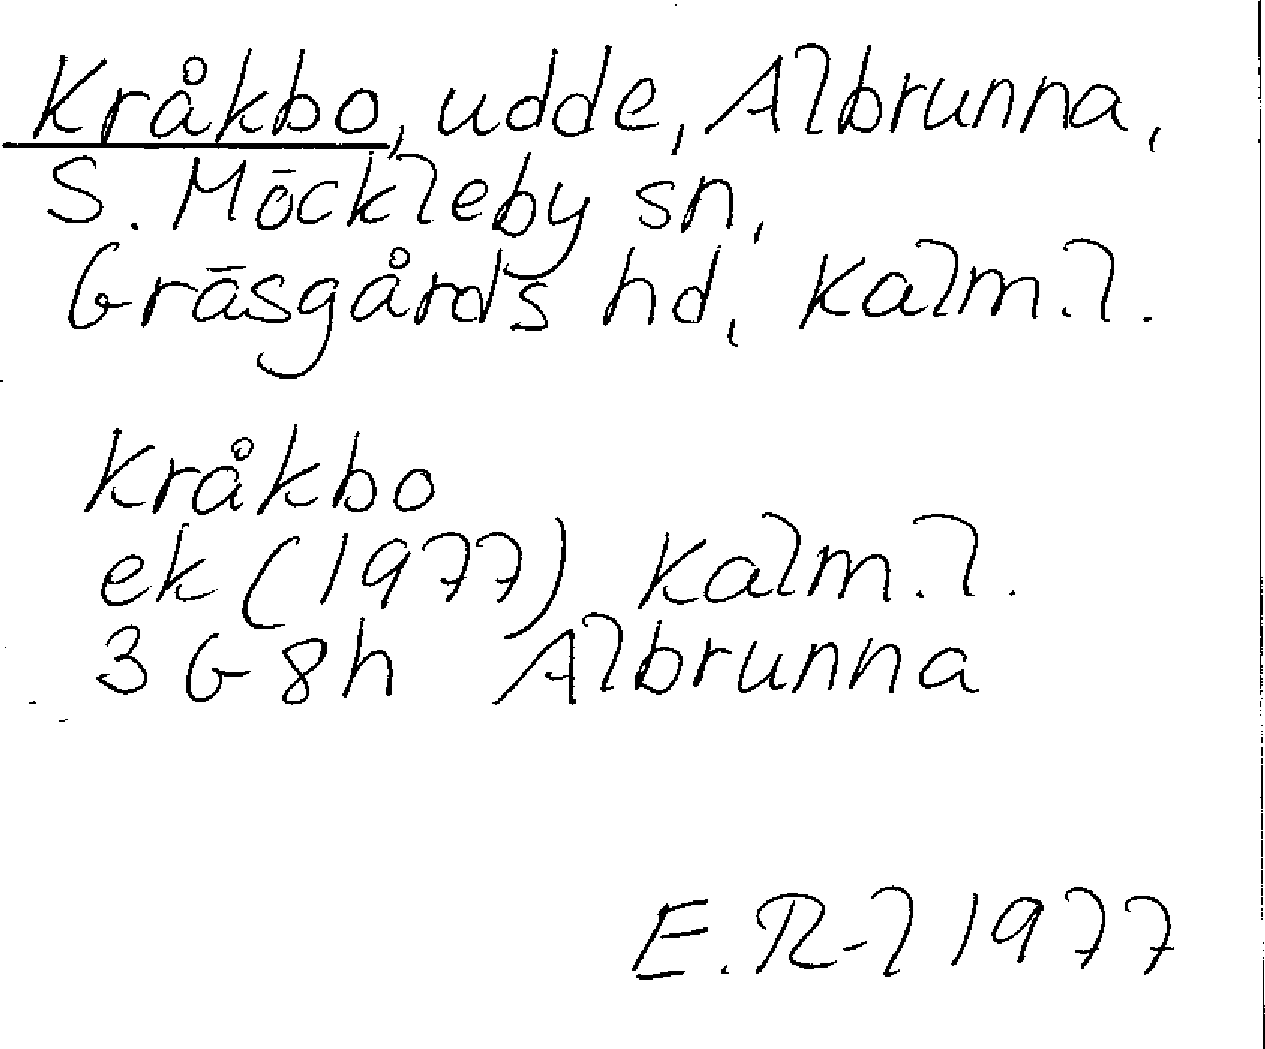 Kråkbo, udde, Albrunna,
S. Möckleby sn,
Gräsgårds hd, Kalm.l.
Kråkbo
ek (1977) Kalm.l.
3G8h Albrunna
E.R-l 1977